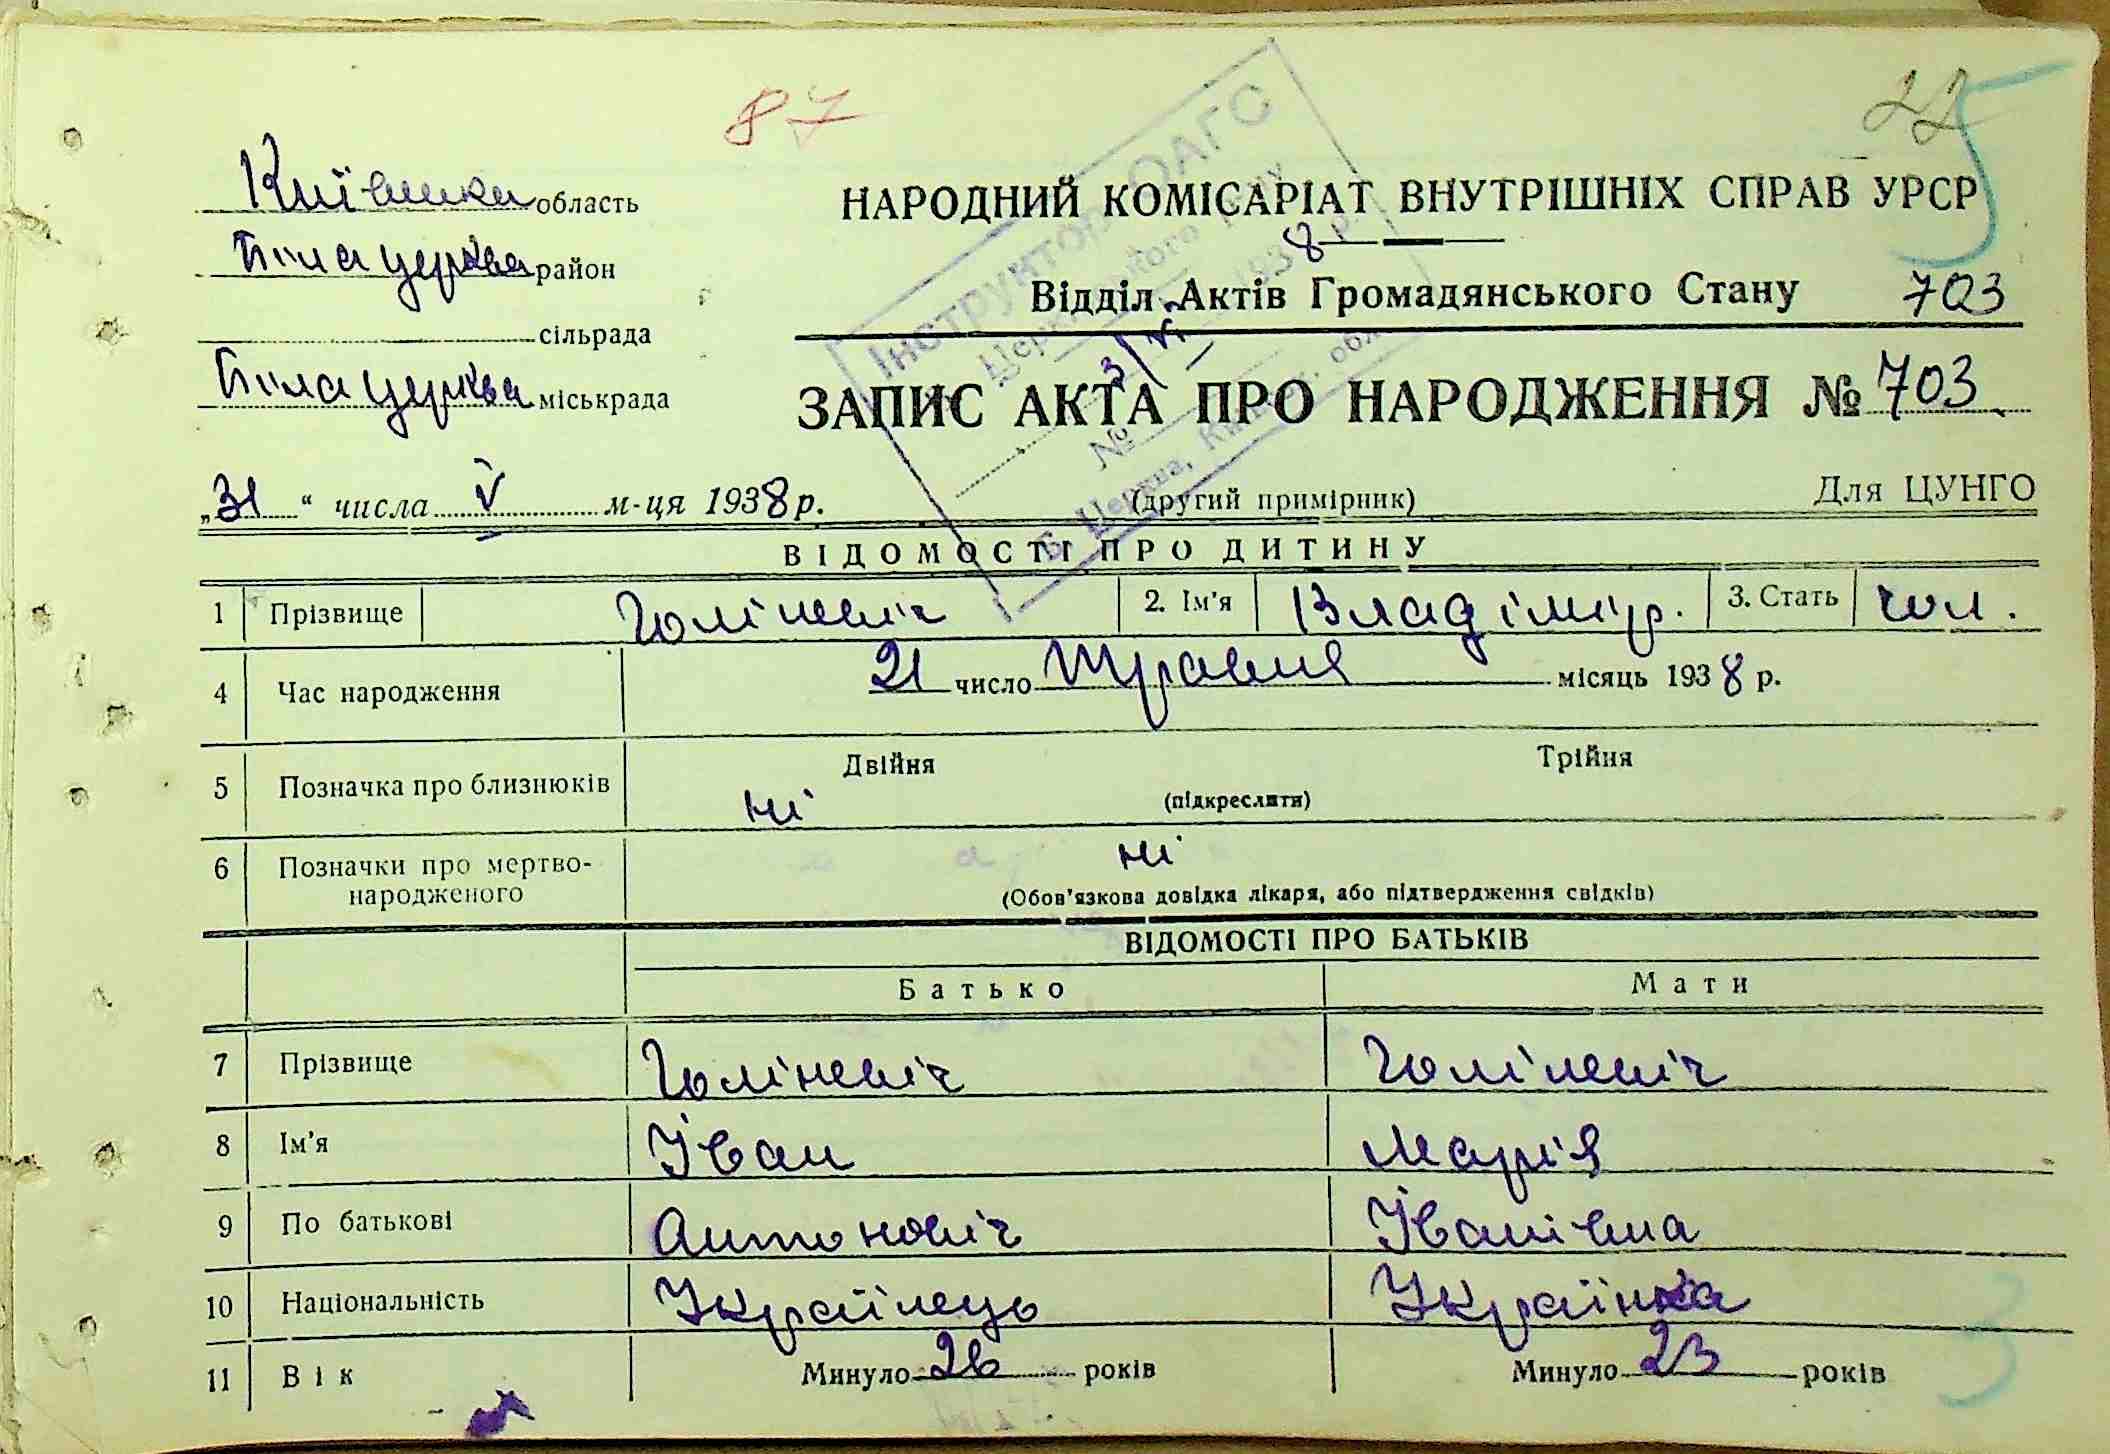 87
22
5
Київська область
НАРОДНИЙ КОМІСАРІАТ ВНУТРІШНІХ СПРАВ УРСР
Біла церква район
Відділ Актів Громадянського Стану 703
сільрада
Біла церква міськрада
ЗАПИС АКТА ПРО НАРОДЖЕННЯ № 703
Інструктор ОАГС
Церк
193 8 р.
№
Б. Церква, обл.
„31“ числа V м-ця 1938 р. (другий примірник) Для ЦУНГО
ВІДОМОСТІ ПРО ДИТИНУ
1 ПрізвищеГоліневіч 2. Ім'я Владімір. 3. Стать чол.
4 Час народження 21 число Травня місяць 1938 р.
5 Позначка про близнюків Двійня Трійня
ні (підкреслити)
6 Позначки про мертво- ні
народженого (Обов'язкова довідка лікаря, або підтвердження свідків)
ВІДОМОСТІ ПРО БАТЬКІВ
Батько Мати
7 Прізвище Голіневіч Голіневіч
8 Ім'я Іван Марія
9 По батькові Антоновіч Іванівна
10 Національність Українець Українка
11 Вік Минуло 26 років Минуло 23 років
3